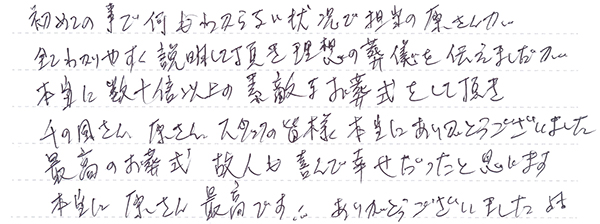 初めての事で何もわからない状況で担当の原さんが
全てわかりやすく説明して頂き理想の葬儀を伝えましたが
本当に数十倍以上の素敵なお葬式をして頂き
千の風さん 原さん スタッフの皆様 本当にありがとうございました
最高のお葬式 故人も喜んで幸せだったと思います
本当に原さん最高です!! ありがとうございました